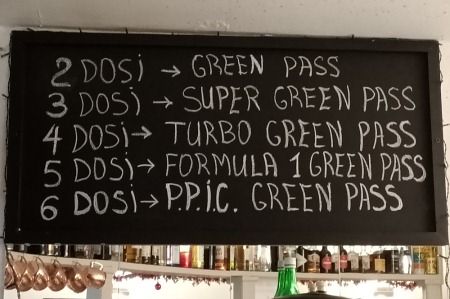 2 DOSi → GREEN PASS
3 DOSi → SUPER GREEN PASS
4 DOSi → TURBO GREEN PASS
5 DOSi → FORMULA 1 GREEN PASS
6 DOSi → P.P.i.C. GREEN PASS